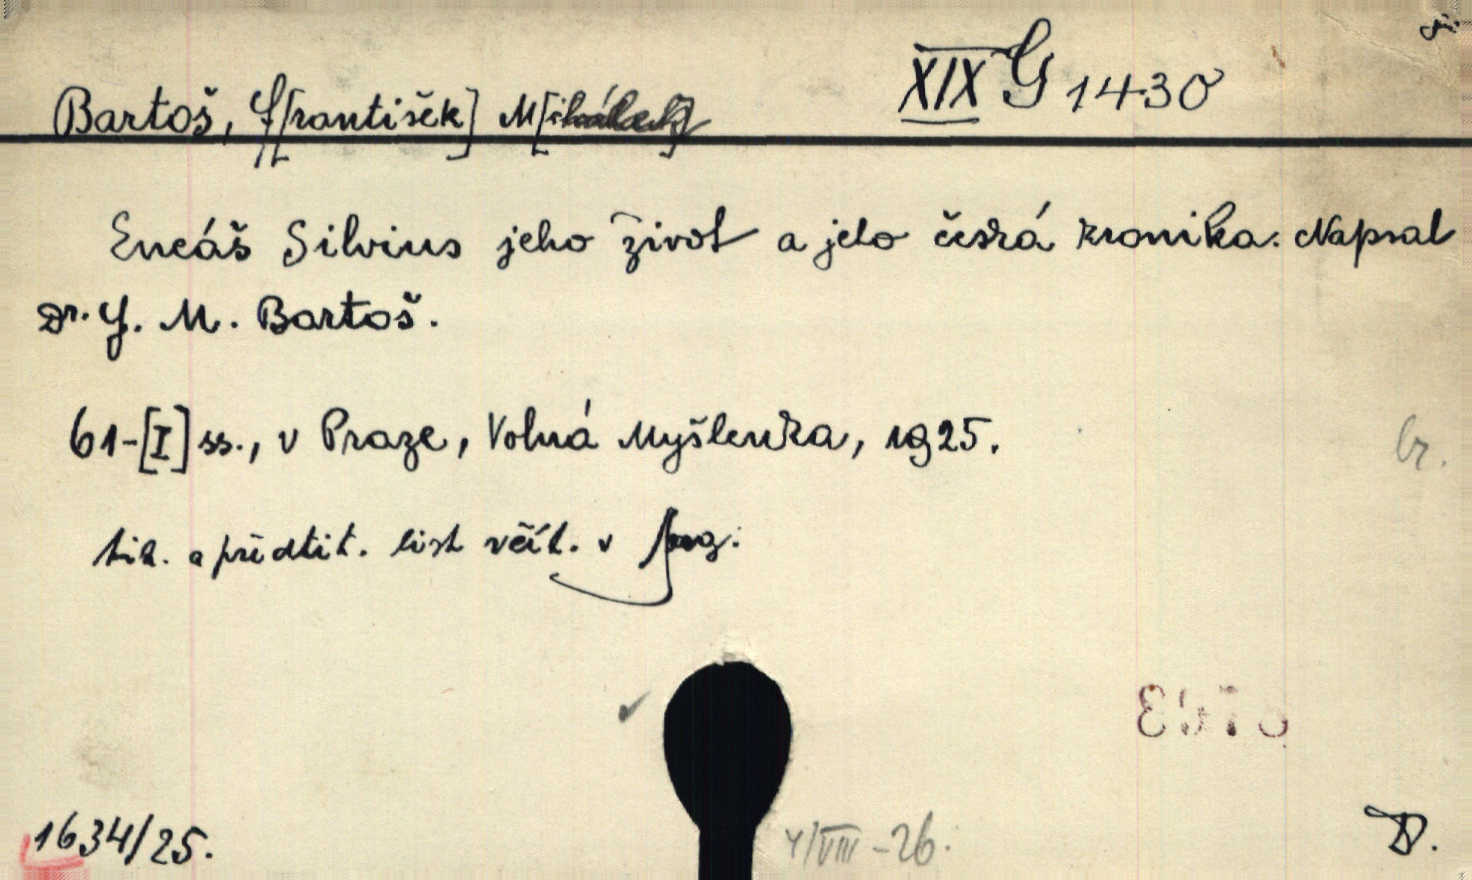 XIX G 1430
Bartoš, F[rantišek] M[
Eneáš Silvius jeho život a jeho česká kronika. Napsal
Dr. F. M. Bartoš.
61-[I] ss., v Praze, Volná Myšlenka, 1925.
br.
tit. a předtit. list včít. v pag.
1634/25.
V/VIII-26.
D.